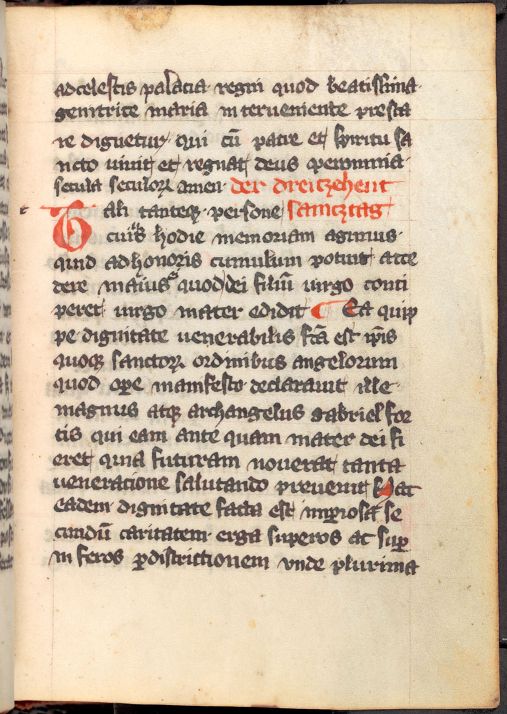 adcelestis palacia regni quod beatissima
genitrice maria interueniente presta
re dignetur qui cū patre et spiritu sa
ncto viuit et regnat deus ꝑ omnia
secula seculoꝝ amen der dreitzehent
Tali tanteqꝫ persone samcztag
cuiꝰ hodie memoriam agimus
quid ad honoris cumulum potuit acce
dere maiusꝰ quod dei filiū virgo conti
peret virgo mater edidit Ea quip
pe dignitate uenerabilis fcā est ip̄is
quoqꝫ sanctoꝝ ordinibus angelorum
quod ope manifesto declarauit ille
magnus atqꝫ archangelus gabriel for
tis qui eam ante quam mater dei fi
eret quia futuram nouerat tanta
ueneratione salutando preuenit
eadem dignitate facta est se
cundū caritatem erga superos ac suꝑ
inferos ꝑ districtionem vnde plurima